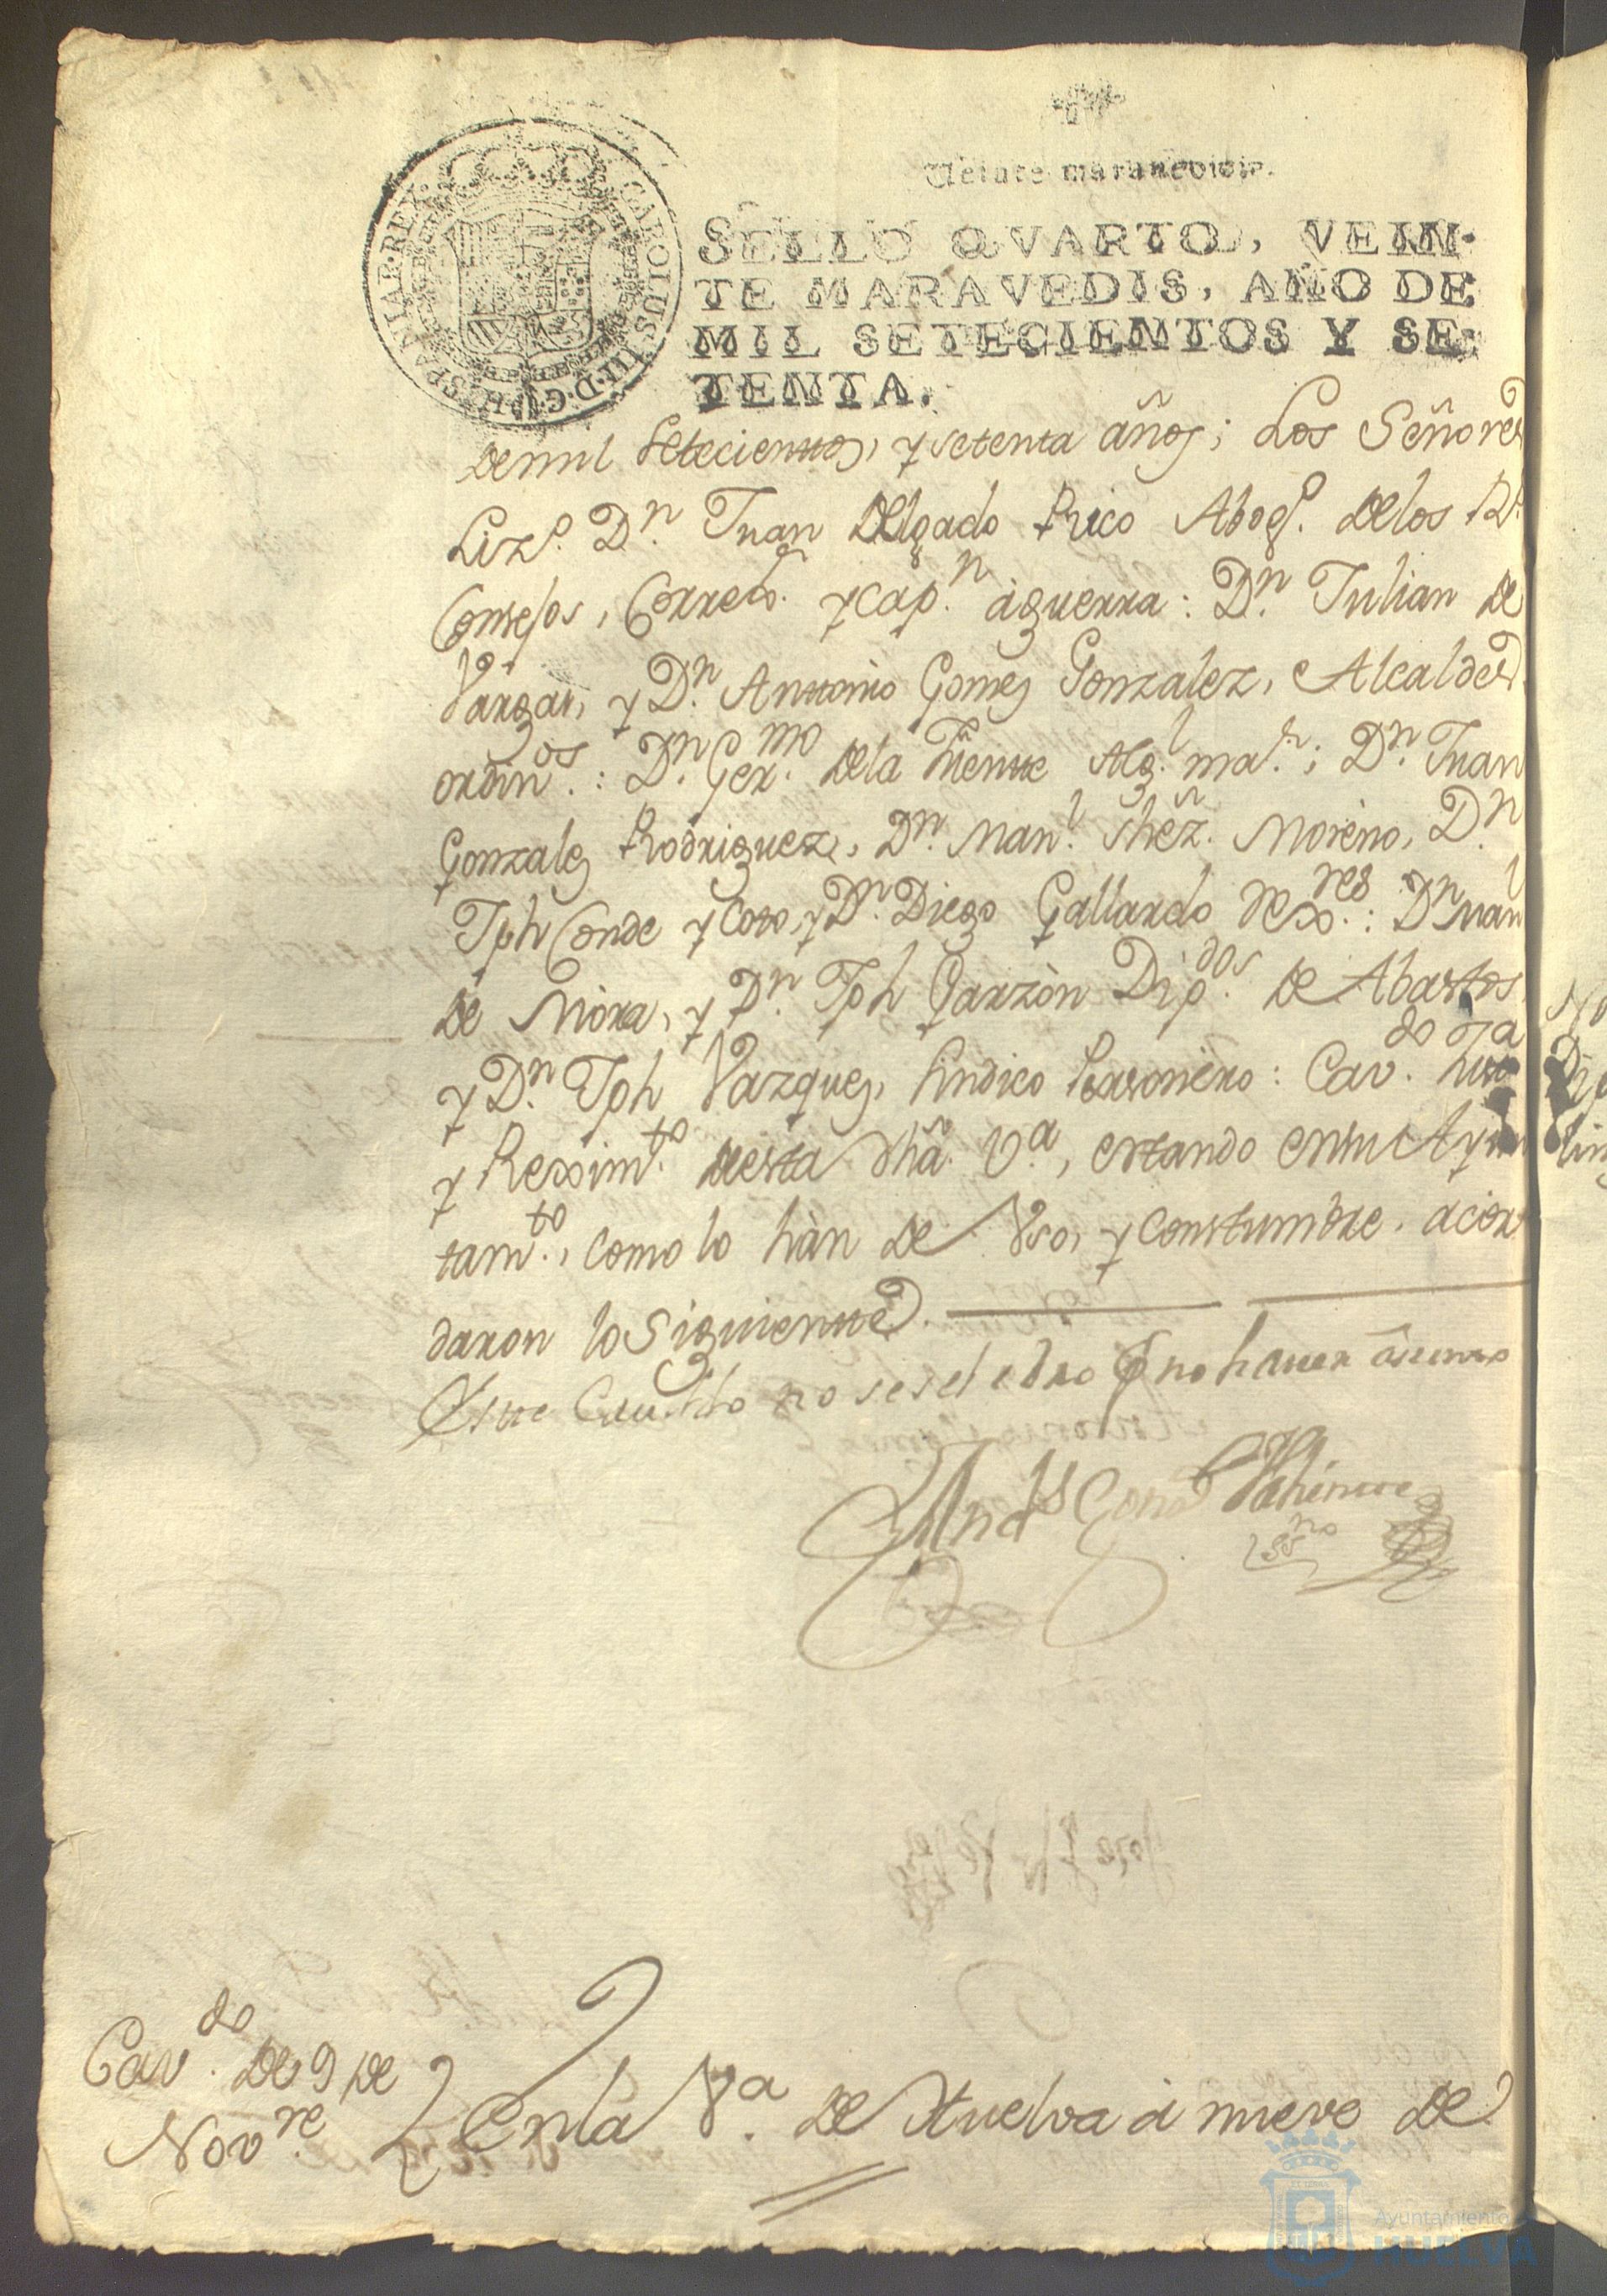 Veinte maravedis.
SELLO QVARTO, VEIN-
TE MARAVEDIS, AÑO DE
MIL SETECIENTOS Y SE-
TENTA.
CAROLUS III D.G. HISPANIAR. REX
de mil setecientos, y setenta años; Los Señores
Lizdo. Dn. Juan Delgado Rico Abogo. de los Rs.
Consejos, Corror. y Capn. àguerra: Dn. Julian de
Vargas, y Dn. Antonio Gomez Gonzalez, Alcaldes
ordinos.: Dn. Germo. de la Fuente Alg.l mar.; Dn. Juan
Gonzalez Rodriguez, Dn. Manl. Shez. Moreno, Dn.
Jph Conde y Coro, y Dn. Diego Gallardo Rexres.: Dn Manl
de Mòra, y Dn. Jph Garzòn Dipdos. de Abastos
y Dn. Jph Vazquez, Sindico Personèro: Cavdo. Justa
y Reximto. desta dha. Va., estando ensu Ayun
tamto., como lo hàn de Vso, y Constumbre, acor
daron lo Siguiente.
Este Cavildo no se selebro Por no haver asumto
Andrs
Ssno
Cavdo. de 9 de
Novre.
En la Va. de Huelva à nueve de
Ayuntamiento
HUELVA